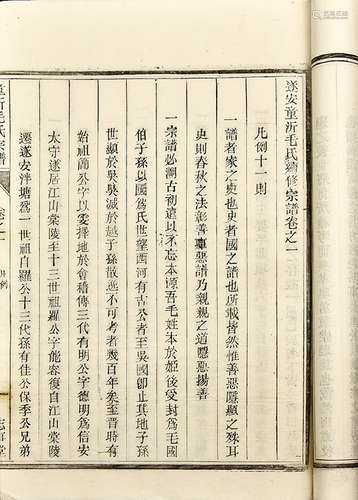 遂安童沂毛氏續修宗譜卷之一
凡例十一則
一譜者家之史也史者國之譜也所載皆然惟善惡隱顯之殊耳
史則春秋之法彰善癉惡譜乃親親之道隱惡揚善
一宗譜必溯古初遠以不忘本源吾毛姓本於姬後受封爲毛國
伯子孫以國爲氏世望西河有古公者至吳國卽止其地子孫
世顯於吳吳滅於越子孫散逸不可考者幾百年矣至晋時有
始祖 公字以雯擇地於會稽傳三代有明公字德明爲信安
太守遂居江山棠陵至十三世祖羅公字能容復自江山棠陵
遷遂安泮塘爲一世祖自羅公十三代孫有佳公保季公兄弟
童沂毛氏宗譜
卷之一
凡例